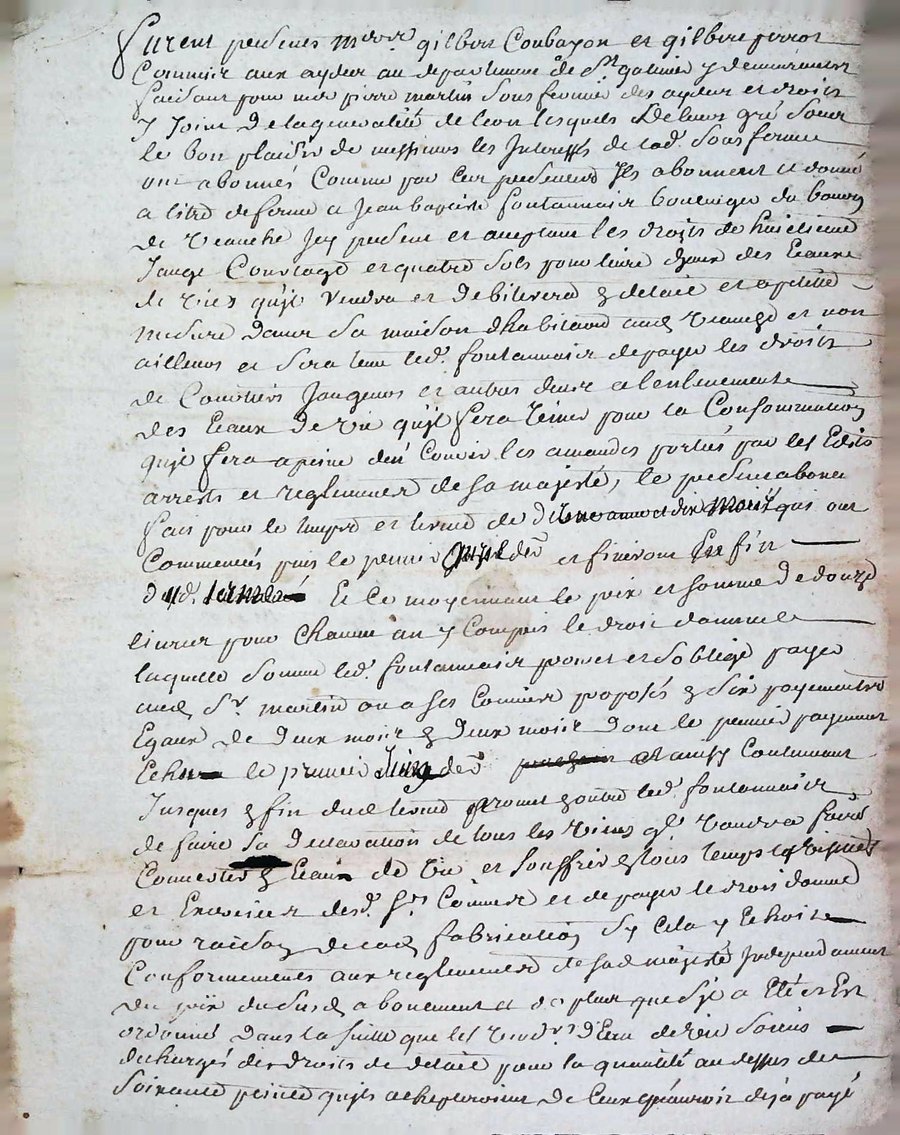 furent presents Mrs gilbert Coubayon et gilbert perrot
Commis aux aydes au departement de St galmier y demeurants
faisant pour mre pierre martin sous fermier des aydes et droits
y Joints De la generalité de leon lesquels De leurs gré sous
le bon plaisir de messieurs les Interessés de lad. sous ferme
ont abonnés Comme par ces presentes Ils abonnent et donné
a titre de ferme a Jean baptiste fontannair boulenger du bourg
de veauche Jcy present et acceptant les droits de huictieme
Jauge Courtage et quatre sols pour livre d'yceux des Eaux
de vies qu'il vendra et Debitera en detail et a petite
mesure dans sa maison d'habitaon aud. veauche et non
ailleurs et sera tenu led. fontannair de payer les droits
de Courtiers Jaugeurs et autres deus a l'enlevement
des Eaux De vie qu'il sera tenu pour la Consommation
qu'il fera a peine d'en Courir les amandes portés par les Edits
arrests et reglements de sa majesté, le present abonet
fait pour le temps et terme de D'une anné et dix mois qui ont
Commencés puis le premier der et finiront En fin
dud. Et Ce moyennant le prix et somme De douze
livres pour chacun an y Compris le droit d'annuel
laquelle somme led. fontannair promet et s'oblige payer
aud. Sr. martin ou a ses Commis proposés en six payements
Egaux de deux mois en deux mois dont le premier payement
Echera le premier der et ainsy Continuant
Jusques en fin dud. terme promet en outre led. fontannair
de faire sa Declaration de tous les vins ql voudra faire
Convertir en Eaux de vie et souffrir en tous temps les visittes
et Exercices desd. Srs Commis et de payer le droit donné
pour raison de lad. fabrication sy cela y Echoit
Conformements aux reglements de sad. majesté Independament
du prix du susd. abonement et de plus que s'il a Eté et Est
ordonné dans la suitte que les vendrs D'Eau de vie soient
dechargés des droits de detail pour la quantité au dessus de
soixante peintes qu'ils acheptoient De Ceux qui auroit deja payé